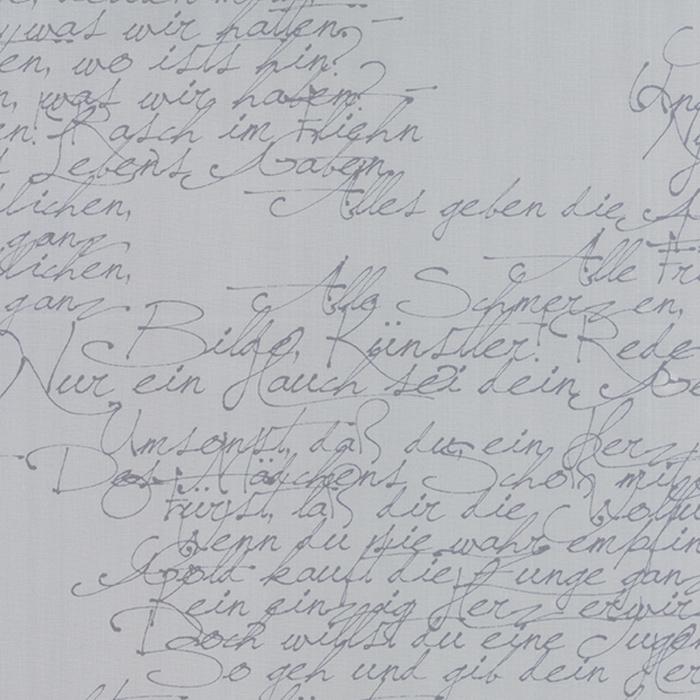 was wir hatten,
en, wo ists hin?
n, was wir haben?
en. Rasch im Fliehn
Lebens Gaben.
lichen,
Alles geben die
ganz
Alle Fr
lichen,
ganz
Alle Schmerzen,
Bilde, Künstler! Rede
Nur ein Hauch sei dein
Umsonst, daß du, ein Herz
Des Mädchens Schoß mit
Fürst, laß dir die Wollu
Wenn du nie wahr empfin
Gold kauft die Zunge gan
Kein einzzig Herz erwir
Doch willst du eine Jugen
So geh und gib dein Her